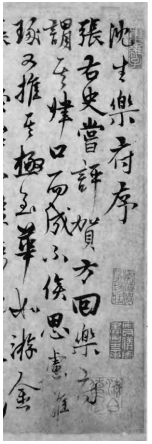 沈生樂府序
張右史嘗評賀方回樂府
謂其肆口而成不俟思慮雕
琢又推其極至華如游金